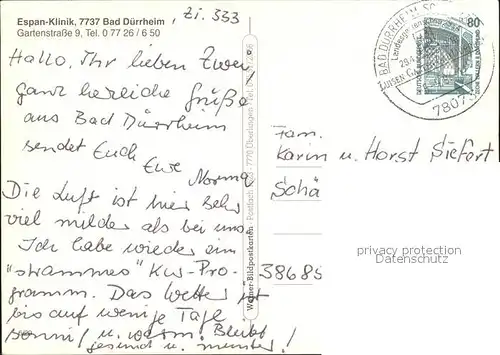 Espan-Klinik, 7737 Bad Dürrheim
Gartenstraße 9, Tel. 0 77 26 / 6 50
, Zi. 333
Hallo, Ihr lieben Zwei,
ganz herzliche Grüße
aus Bad Dürrheim
sendet Euch
Eure
Norma
Die Luft ist hier sehr
viel milder als bei uns
Ich habe wieder ein
"strammes" Kur-Pro-
gramm. Das Wetter ist
bis auf wenige Tage
sonnig u. warm. Bleibt
gesund u. munter!
Werner-Bildpostkarten · Postfach 7770 Überlingen
BAD DÜRRHEIM
Landesgartenschau
LUISEN
7807
80
DEUTSCHE BUNDESPOST
Fam.
Karin u. Horst Siefort
Schä
38685
privacy protection
Datenschutz